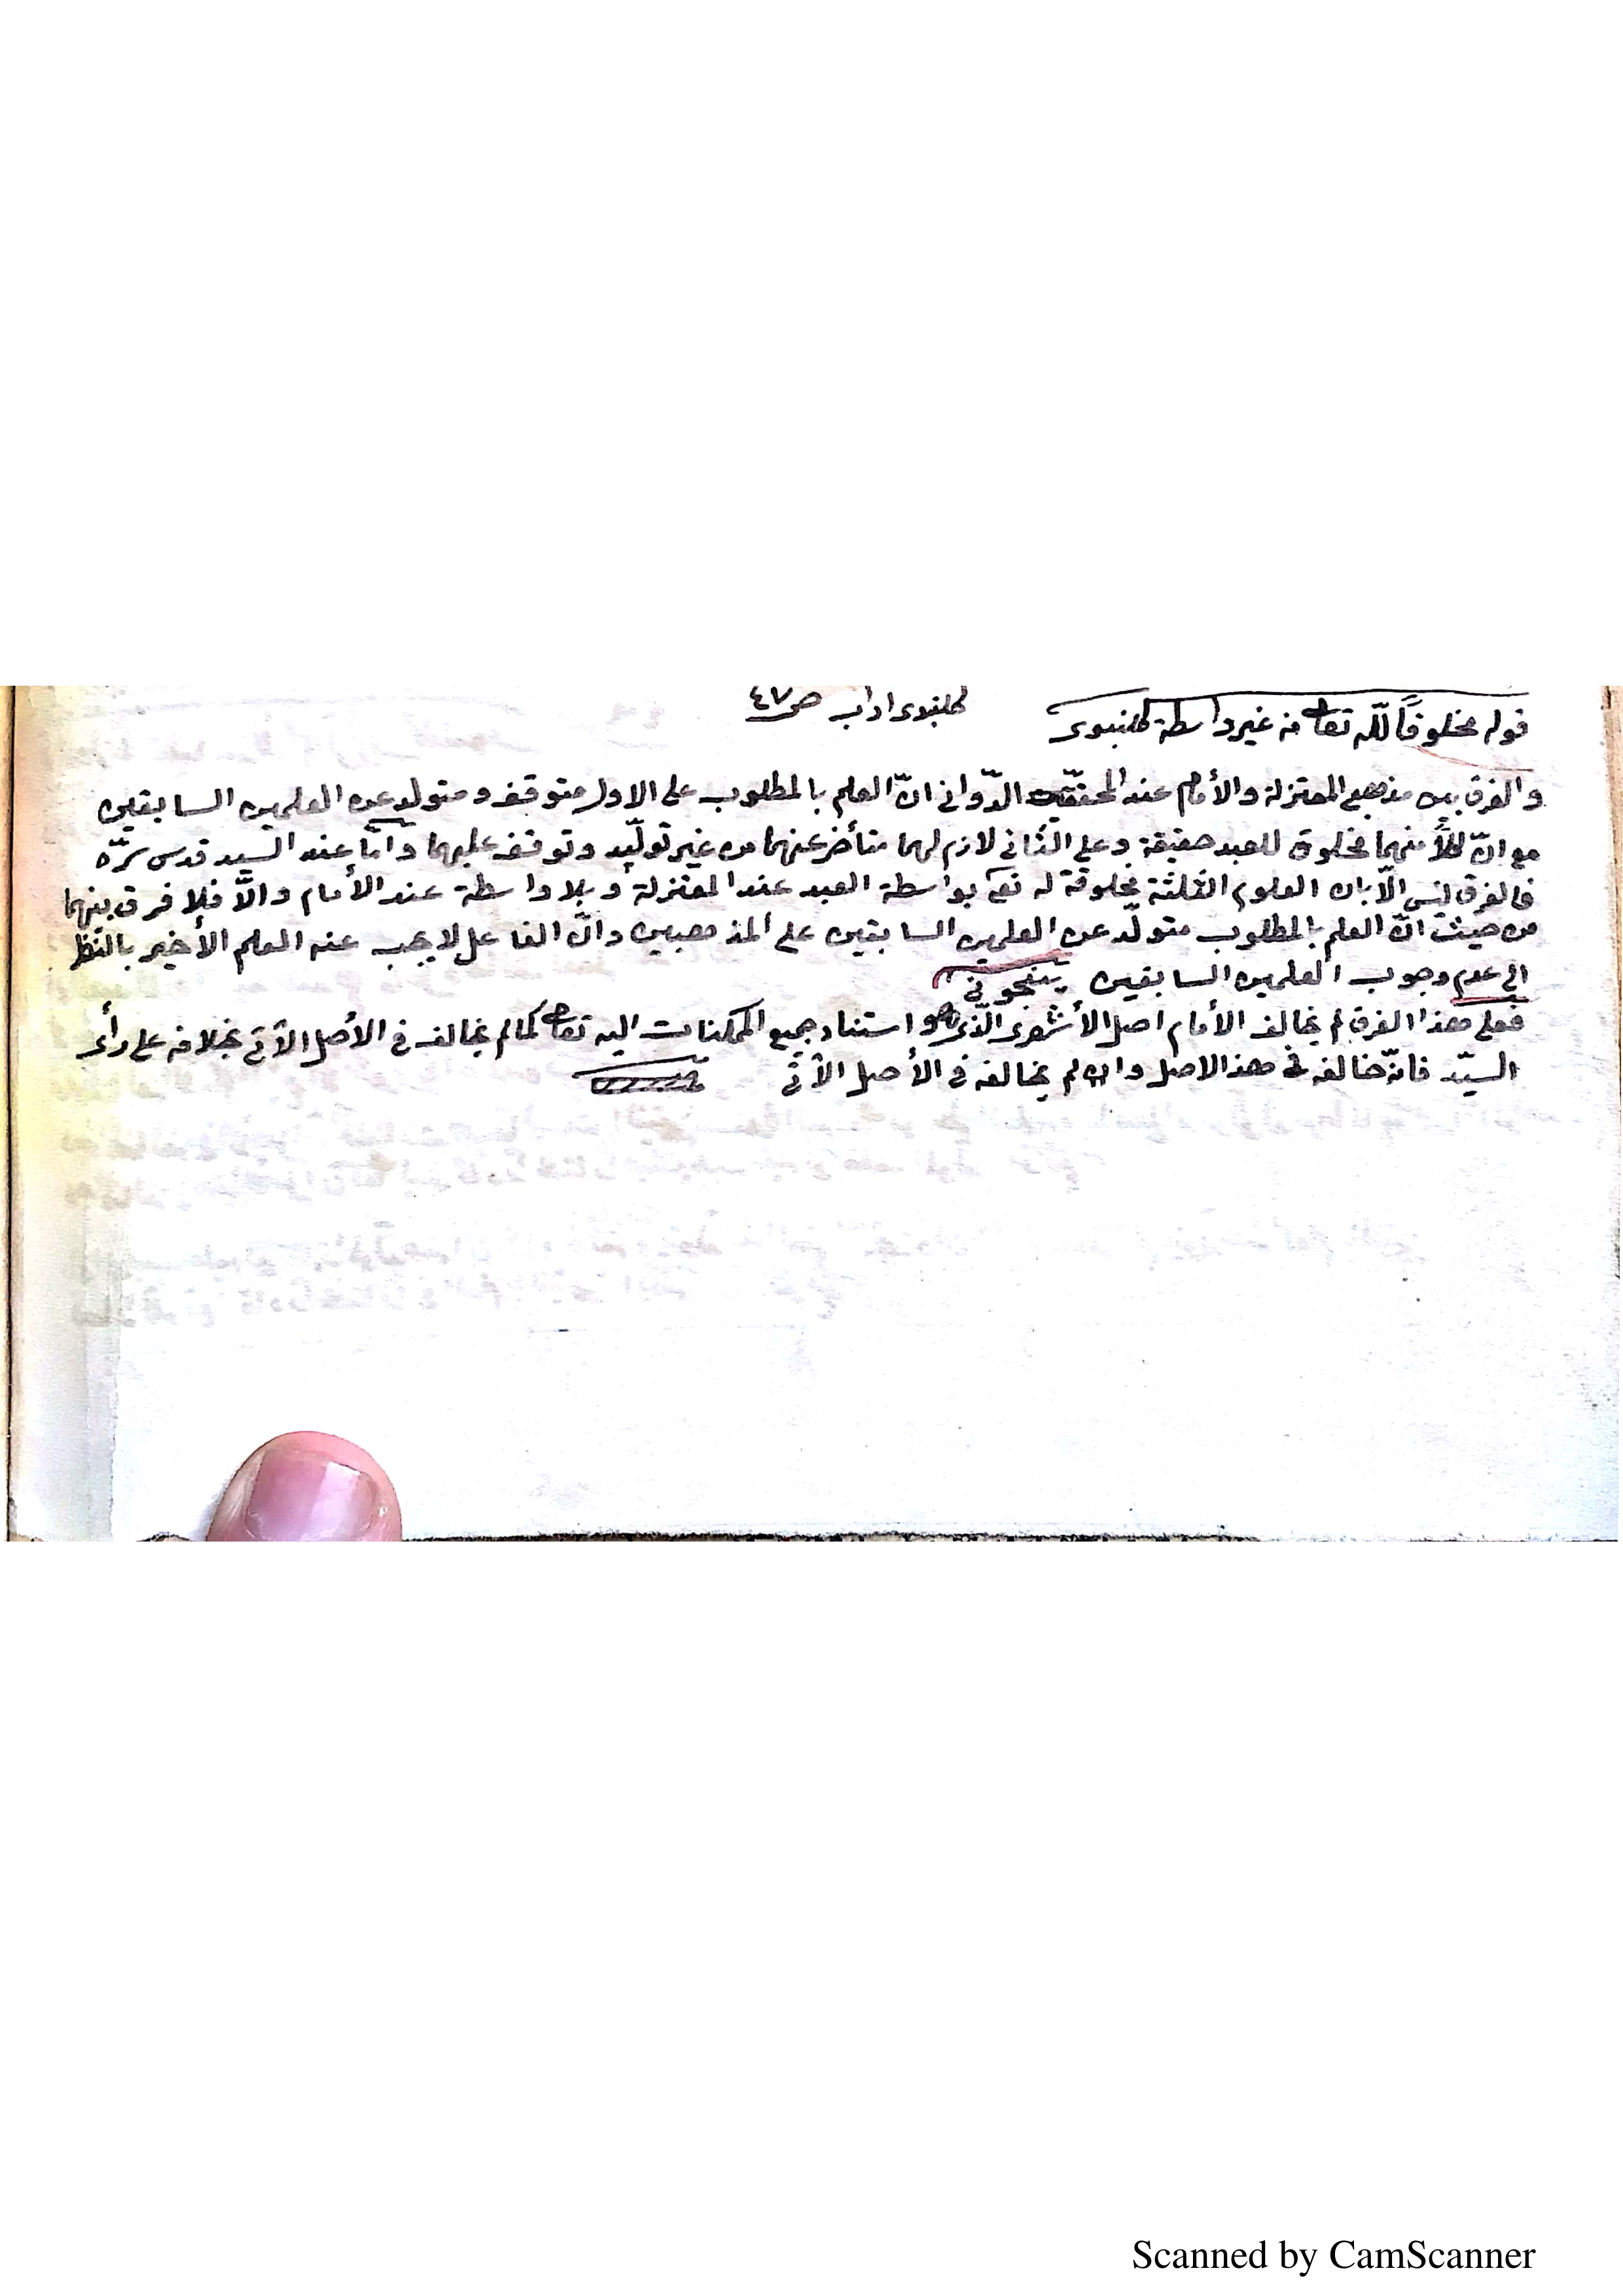 كلنبوى اداب ص ٤٧
قوله مخلوقاً للّه تعا من غير واسطة كلنبوى
والفرق بين مذهبى المعتزلة والأمام عند المحقق الدّوانى انّ العلم بالمطلوب على الاول متوقف ومتولد عن العلمين السابقين
مع انّ كلاًّ منهما مخلوق للعبد حقيقة وعلى الثّانى لازم لهما متأخر عنهما من غير توليد وتوقف عليهما وامّا عند السيد قدس سرّه
فالفرق ليس الّا بان العلوم الثلثة مخلوقة له تع بواسطة العبد عند المعتزلة وبلا واسطة عند الأمام والّا فلا فرق بينهما
من حيث انّ العلم بالمطلوب متولّد عن العلمين السابقين على المذهبين وانّ الفاعل لا يجب عنه العلم الأخير بالنظر
الى عدم وجوب العلمين السابقين پنجونى
فعلى هذا الفرق لم يخالف الأمام اصل الأشعرى الّذى هو استناد جميع الممكنات اليه تعا كما لم يخالف فى الأصل الآتى بخلافه على رأى
السيّد فانّه خالفه فى هذا الاصل وان لم يخالفه فى الأصل الآتى
Scanned by CamScanner